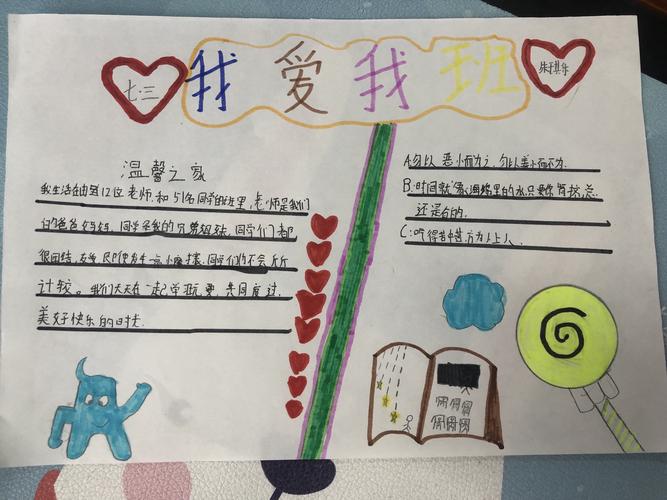 七.三
我爱我班
朱琪乐
温馨之家
我生活在由 12位老师和51名同学的班里,老师是我们
的爸爸妈妈,同学是我的兄弟姐妹,同学们都
很团结,友爱,即使发生一点小摩擦,同学们也不会斤斤
计较。我们天天在一起学玩耍,共同度过
美好快乐的时光.
A:勿以恶小而为之,勿以善小而不为.
B:时间就象海绵里的水,只要你肯挤,总
还是有的.
C:吃得苦中苦,方为人上人.